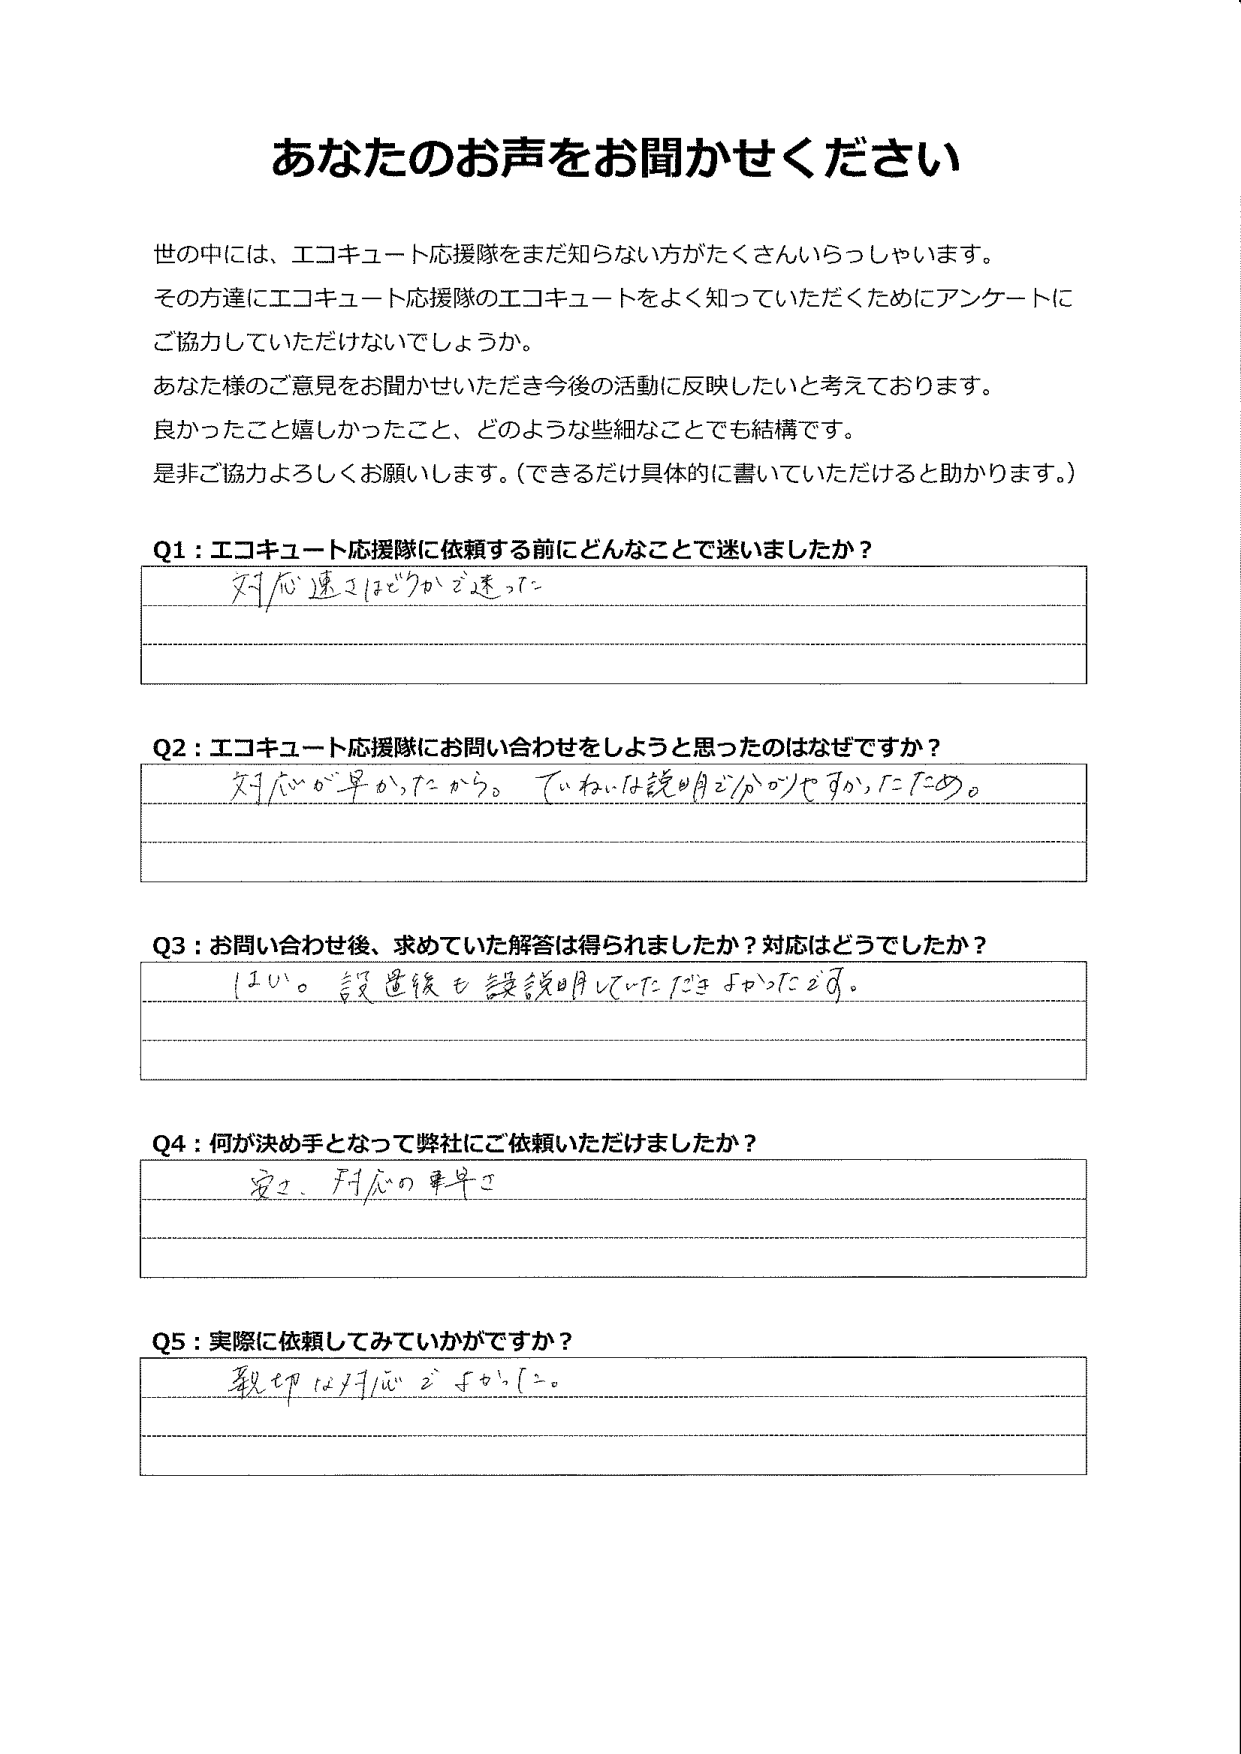 あなたのお声をお聞かせください
世の中には、エコキュート応援隊をまだ知らない方がたくさんいらっしゃいます。
その方達にエコキュート応援隊のエコキュートをよく知っていただくためにアンケートに
ご協力していただけないでしょうか。
あなた様のご意見をお聞かせいただき今後の活動に反映したいと考えております。
良かったこと嬉しかったこと、どのような些細なことでも結構です。
是非ご協力よろしくお願いします。（できるだけ具体的に書いていただけると助かります。）
Q1：エコキュート応援隊に依頼する前にどんなことで迷いましたか？
対応速さはどうかで迷った
Q2：エコキュート応援隊にお問い合わせをしようと思ったのはなぜですか？
対応が早かったから。ていねいな説明で分かりやすかったため。
Q3：お問い合わせ後、求めていた解答は得られましたか？対応はどうでしたか？
はい。設置後も説明していただきよかったです。
Q4：何が決め手となって弊社にご依頼いただけましたか？
安さ、対応の早さ
Q5：実際に依頼してみていかがですか？
親切な対応でよかった。